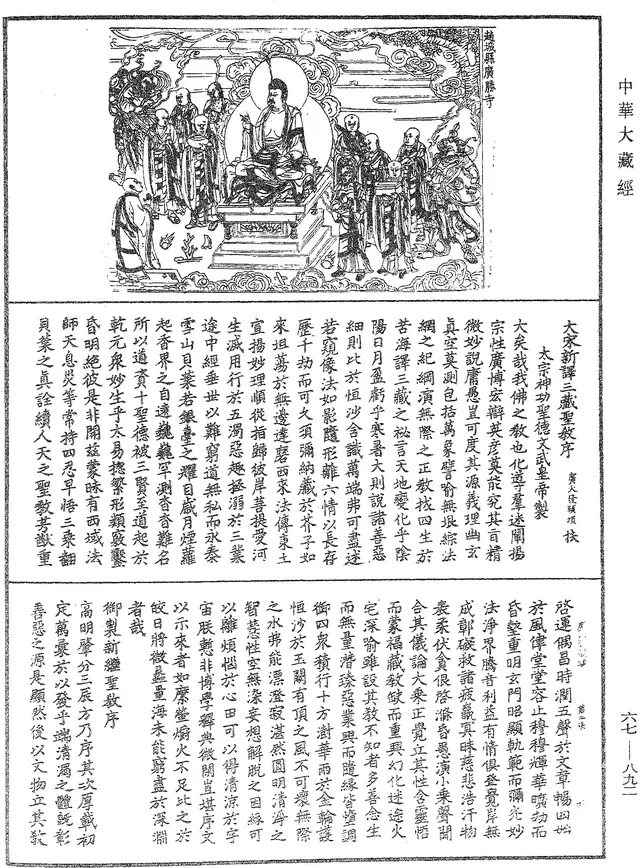 中華大藏經
六七—八九二
趙城縣廣勝寺
大宋新譯三藏聖教序
太宗神功聖德文武皇帝製
大矣哉我佛之教也化導群迷闡揚
宗性廣博宏辯英彥莫能究其旨精
微妙說庸愚豈可度其源義理幽玄
真空莫測包括萬象譬喻無垠綜法
網之紀綱演無際之正教拔四生於
苦海譯三藏之祕言天地變化乎陰
陽日月盈虧乎寒暑大則說諸善惡
細則比於恒沙含識萬端弗可盡述
若窺像法如影隨形離六情以長存
歷千劫而可久須彌納藏於芥子如
來坦蕩於無邊達磨西來法傳東土
宣揚妙理順從指歸彼岸菩提愛河
生滅用行於五濁惡趣拯溺於三業
途中經垂世以難窮道無私而永泰
雪山貝葉若銀臺之耀目歲月煙蘿
起香界之自遠巍巍罕測杳杳難名
所以道資十聖德被三賢至道起於
乾元眾妙生乎太易揔繁形類竅鑿
昏明絕彼是非開茲蒙昧有西域法
師天息災等常持四忍早悟三乘翻
貝葉之真詮續人天之聖教芳猷重
啓運偶昌時潤五聲於文章暢四始
於風律堂堂容止穆穆輝華曠劫而
昏墊重明玄門昭顯軌範而彌光妙
法淨界騰音利益有情俱登覺岸無
成鄣礙救諸疲羸冥昧慈悲浩汗物
表柔伏貪很啓滌昏愚演小乘聲聞
合其儀論大乘正覺立其性含靈悟
而蒙福藏教缺而重興幻化迷途火
宅深喻雖設其教不知者多善念生
而無量潛臻惡業興而隨緣皆墮調
御四眾積行十方澍華雨於金輪護
恒沙於玉闕有頂之風不可壞無際
之水弗能漂澄寂湛然圓明清淨之
智慧性空無染妄想解脫之因緣可
以離煩惱於心田可以得清涼於宇
宙朕慙非博學釋典微閑豈堪序文
以示來者如縻螢爝火不足比之於
皎日將微蠡量海未能窮盡於深淵
者哉
御製新繼聖教序
高明肇分三辰方乃序其次厚載初
定萬彙於以發乎端清濁之體既彰
善惡之源是顯然後以文物立其教